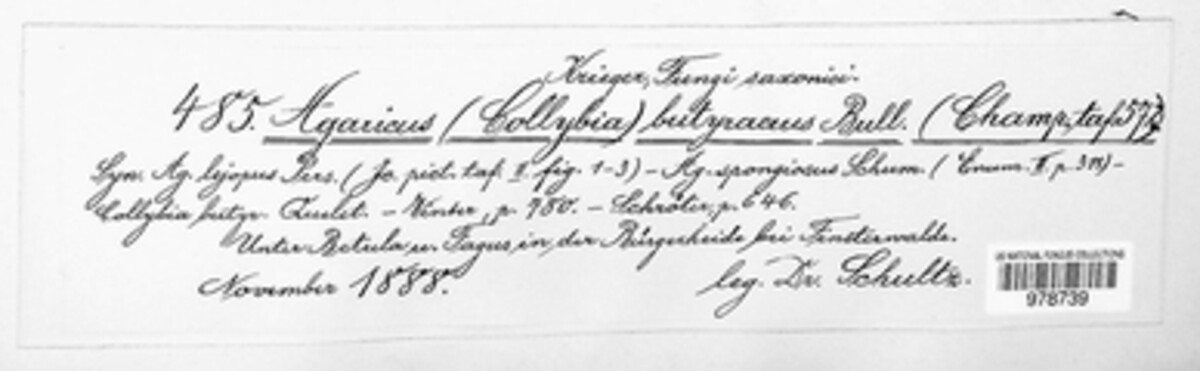 Krieger, Fungi saxonici.
485. Agaricus (Collybia) butyraceus Bull. (Champ., taf. 572)
Syn. Ag. lejopus Pers. (Jc. pict. taf. II. fig. 1-3) - Ag. spongiosus Schum. (Enum. II. p. 311) -
Collybia butyr. Quelet. - Winter, p. 780. - Schröter, p. 646.
Unter Betula u. Fagus, in der Bürgerheide bei Finsterwalde.
November 1888.
leg. Dr. Schultz.
US NATIONAL FUNGUS COLLECTIONS
978739